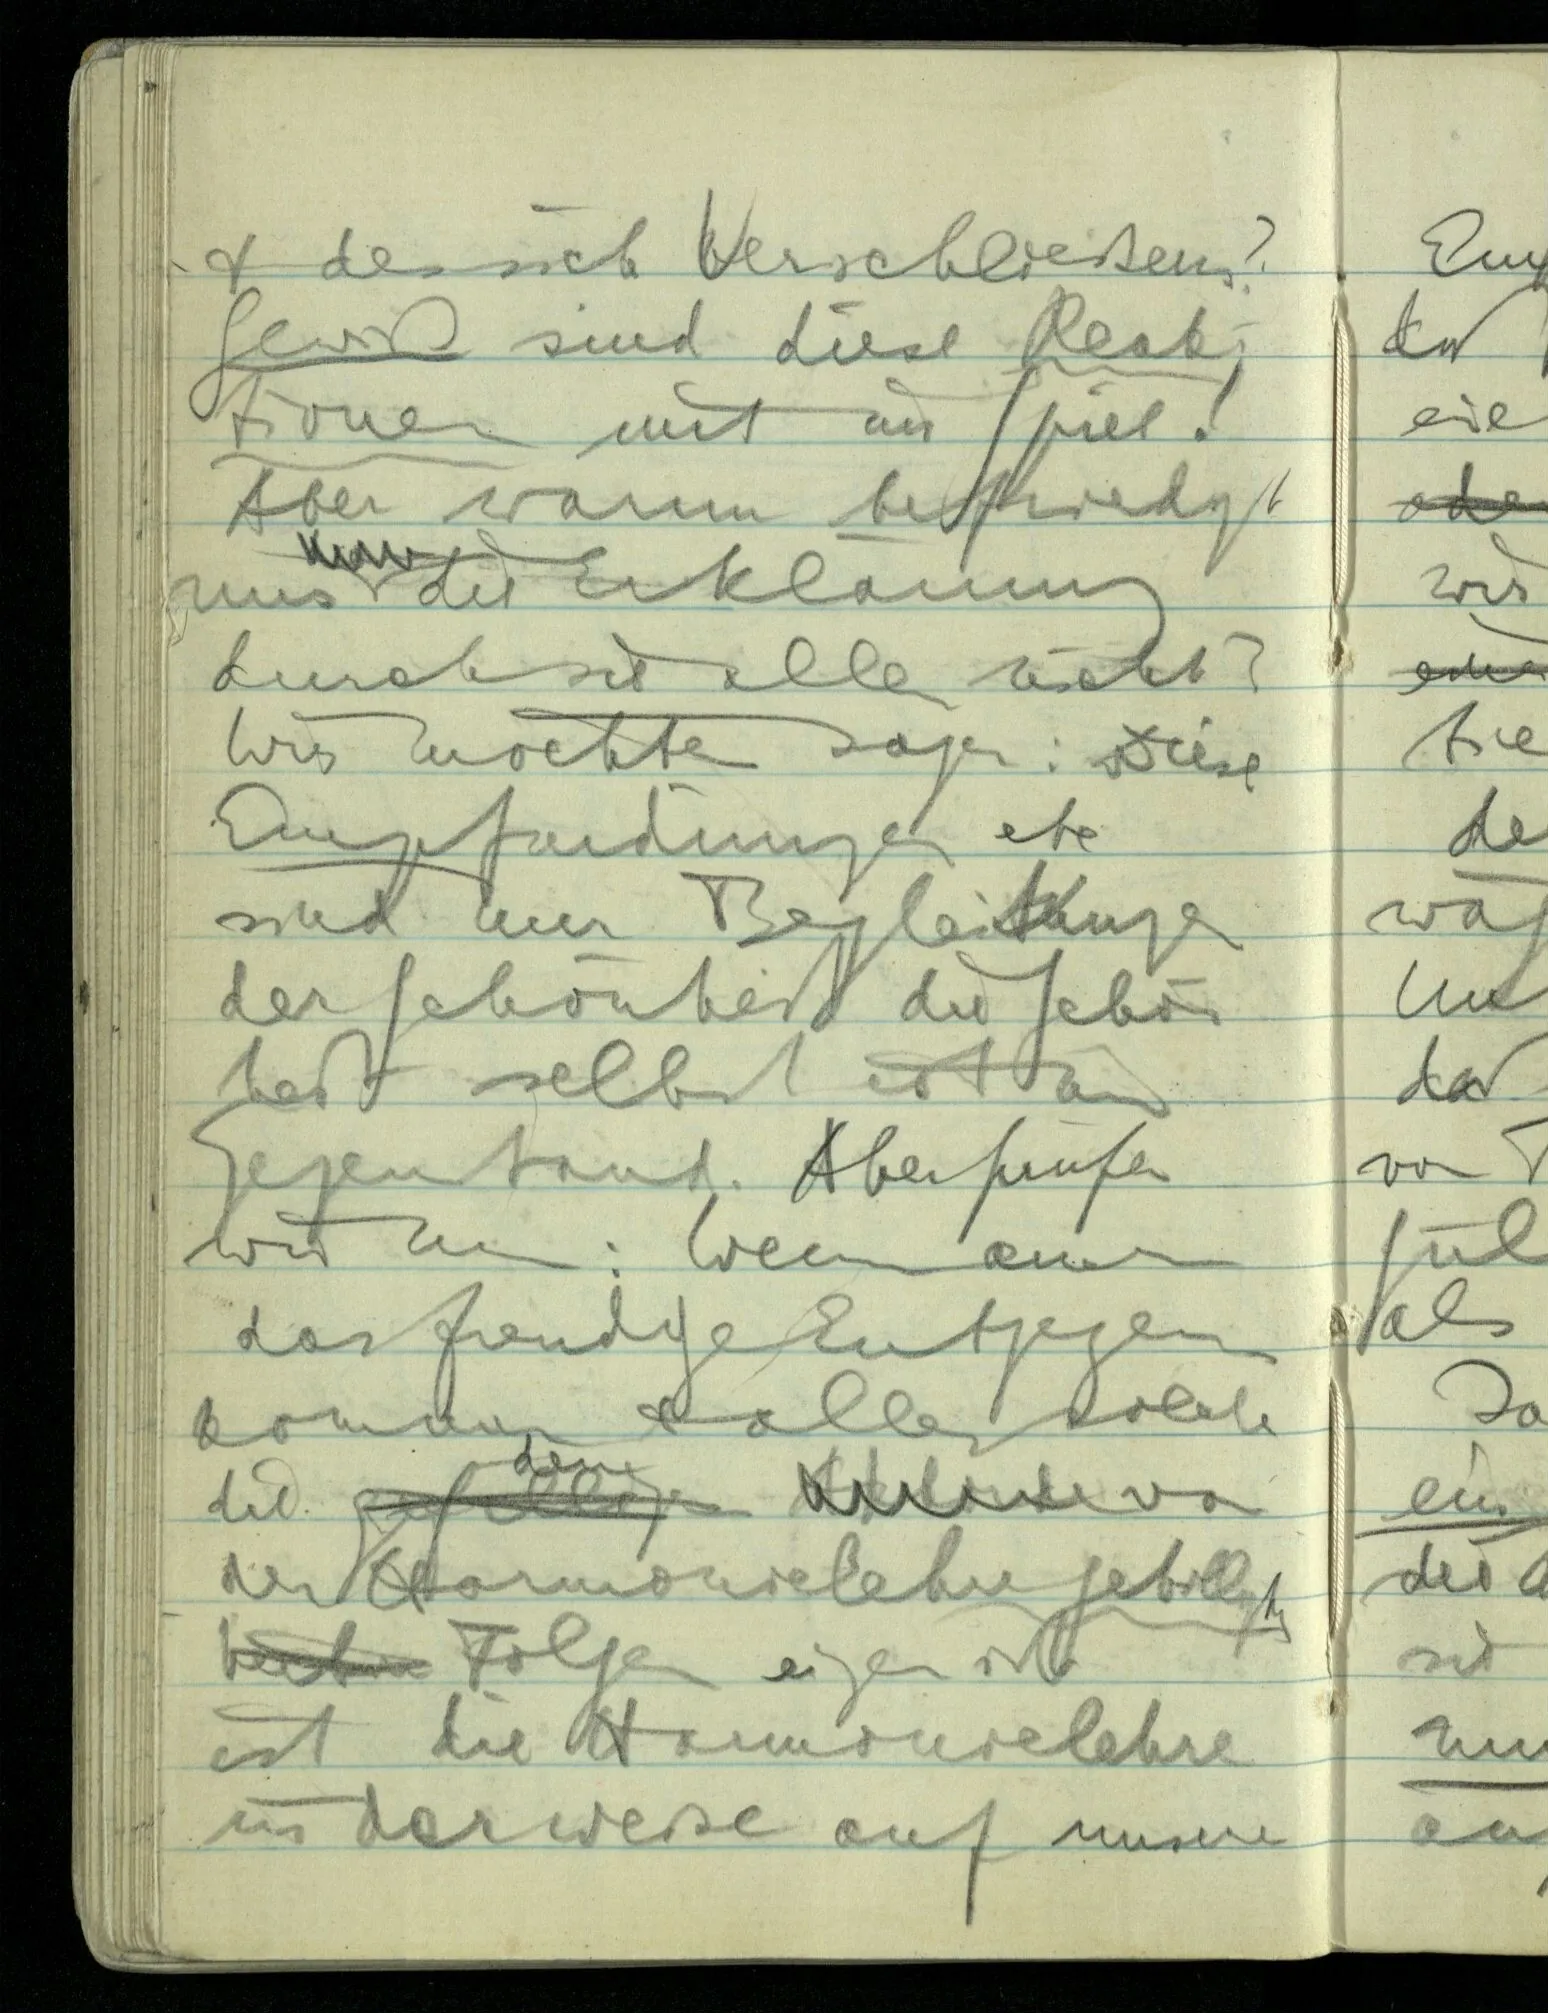 & des sich Verschließens?
Gewiß sind diese Reak-
tionen mit im Spiel!
Aber warum befriedigt
uns die Erklärung
durch sie alle nicht?
Wir möchten sagen: Diese
Empfindungen etc
sind nur Begleitunge
der Schönheit die Schön
heit selbst ist ein
Gegenstand. Aber prüfen
wir nun: Wenn
das freudige Entgegen
kommen & alle solche
die den von
der Harmonielehre gebilligten
Folgen eigen ist
ist die Harmonielehre
in der weise auf unsere
Emp
der
eie
oder
wir
tie
de
wa
Un
das
von
als
Da
ein
die
sie